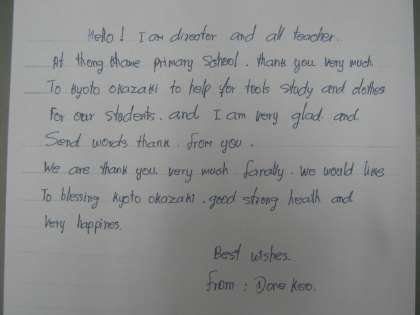 Hello! I am director and all teacher.
At thong khame primary school. thank you very much
To kyoto okazaki to help for tools study and clothes
For our students. and I am very glad and
Send words thank. from you.
We are thank you very much fanally. We would like
To blessing kyoto okazaki. good strong health and
very happines.
Best wishes.
From: Done keo.